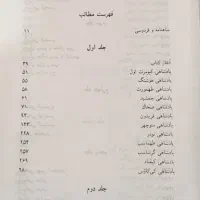 فهرست مطالب
شاهنامه و فردوسی ۱۱
جلد اول
آغاز کتاب ۳۹
پادشاهی کیومرث اول ۵۱
پادشاهی هوشنگ
پادشاهی طهمورث
پادشاهی جمشید
پادشاهی ضحاک
پادشاهی فریدون
پادشاهی منوچهر
پادشاهی نوذر
پادشاهی طهماسب
پادشاهی گرشاسب ۲۵۷
پادشاهی کیقباد ۲۶۹
پادشاهی کی‌کاوس
جلد دوم